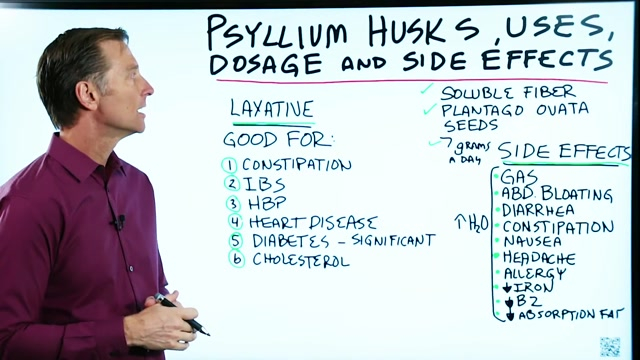 PSYLLIUM HUSKS, USES,
DOSAGE AND SIDE EFFECTS
LAXATIVE
GOOD FOR:
1 CONSTIPATION
2 IBS
3 HBP
4 HEART DISEASE
5 DIABETES - SIGNIFICANT
6 CHOLESTEROL
✓ SOLUBLE FIBER
✓ PLANTAGO OVATA
SEEDS
✓ 7 grams
A DAY
SIDE EFFECTS
↑ H2O
GAS
ABD. BLOATING
DIARRHEA
CONSTIPATION
NAUSEA
HEADACHE
ALLERGY
↓ IRON
↓ B2
↓ ABSORPTION FAT